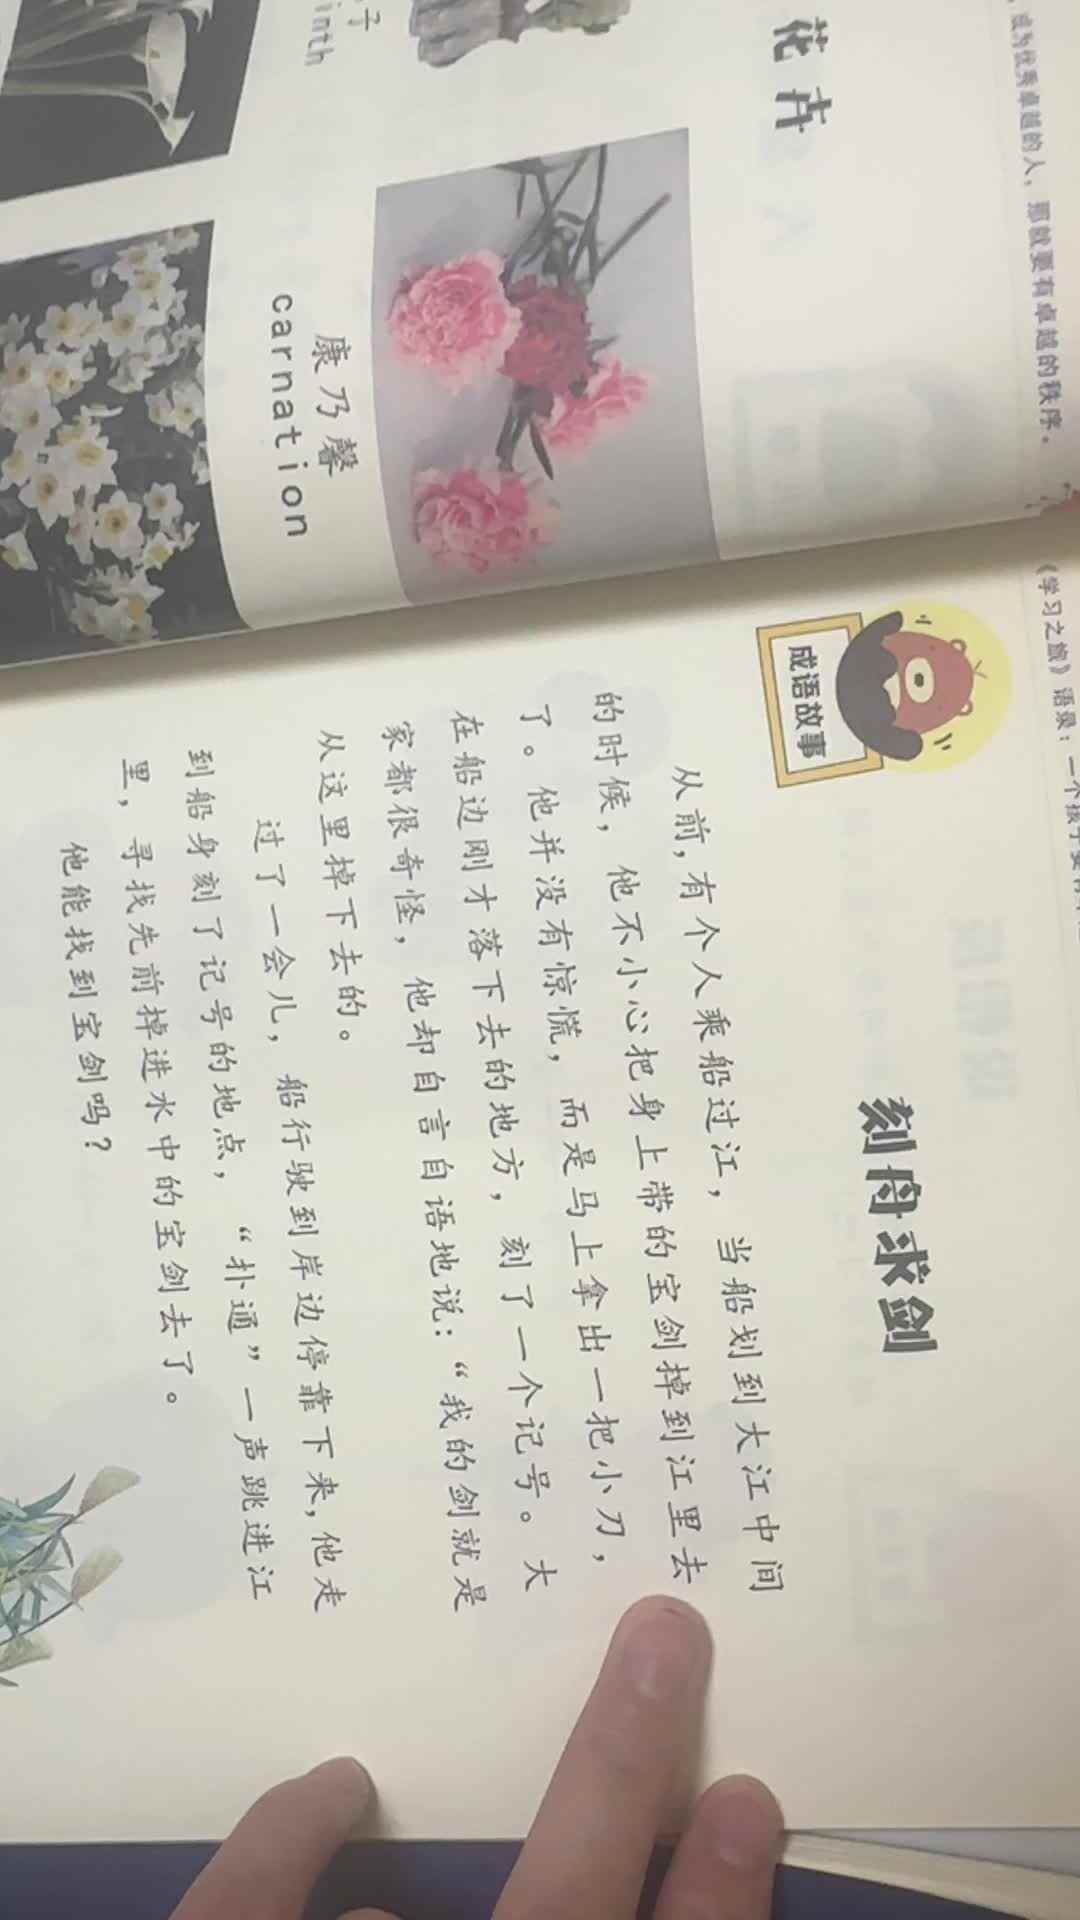 成为优秀卓越的人，那就要有卓越的秩序。
花卉
子
inth
康乃馨
carnation
《学习之旅》语录：一个孩子要有
成语故事
刻舟求剑
从前，有个人乘船过江，当船划到大江中间
的时候，他不小心把身上带的宝剑掉到江里去
了。他并没有惊慌，而是马上拿出一把小刀，
在船边刚才落下去的地方，刻了一个记号。大
家都很奇怪，他却自言自语地说：“我的剑就是
从这里掉下去的。
过了一会儿，船行驶到岸边停靠下来，他走
到船身刻了记号的地点，“扑通”一声跳进江
里，寻找先前掉进水中的宝剑去了。
他能找到宝剑吗？